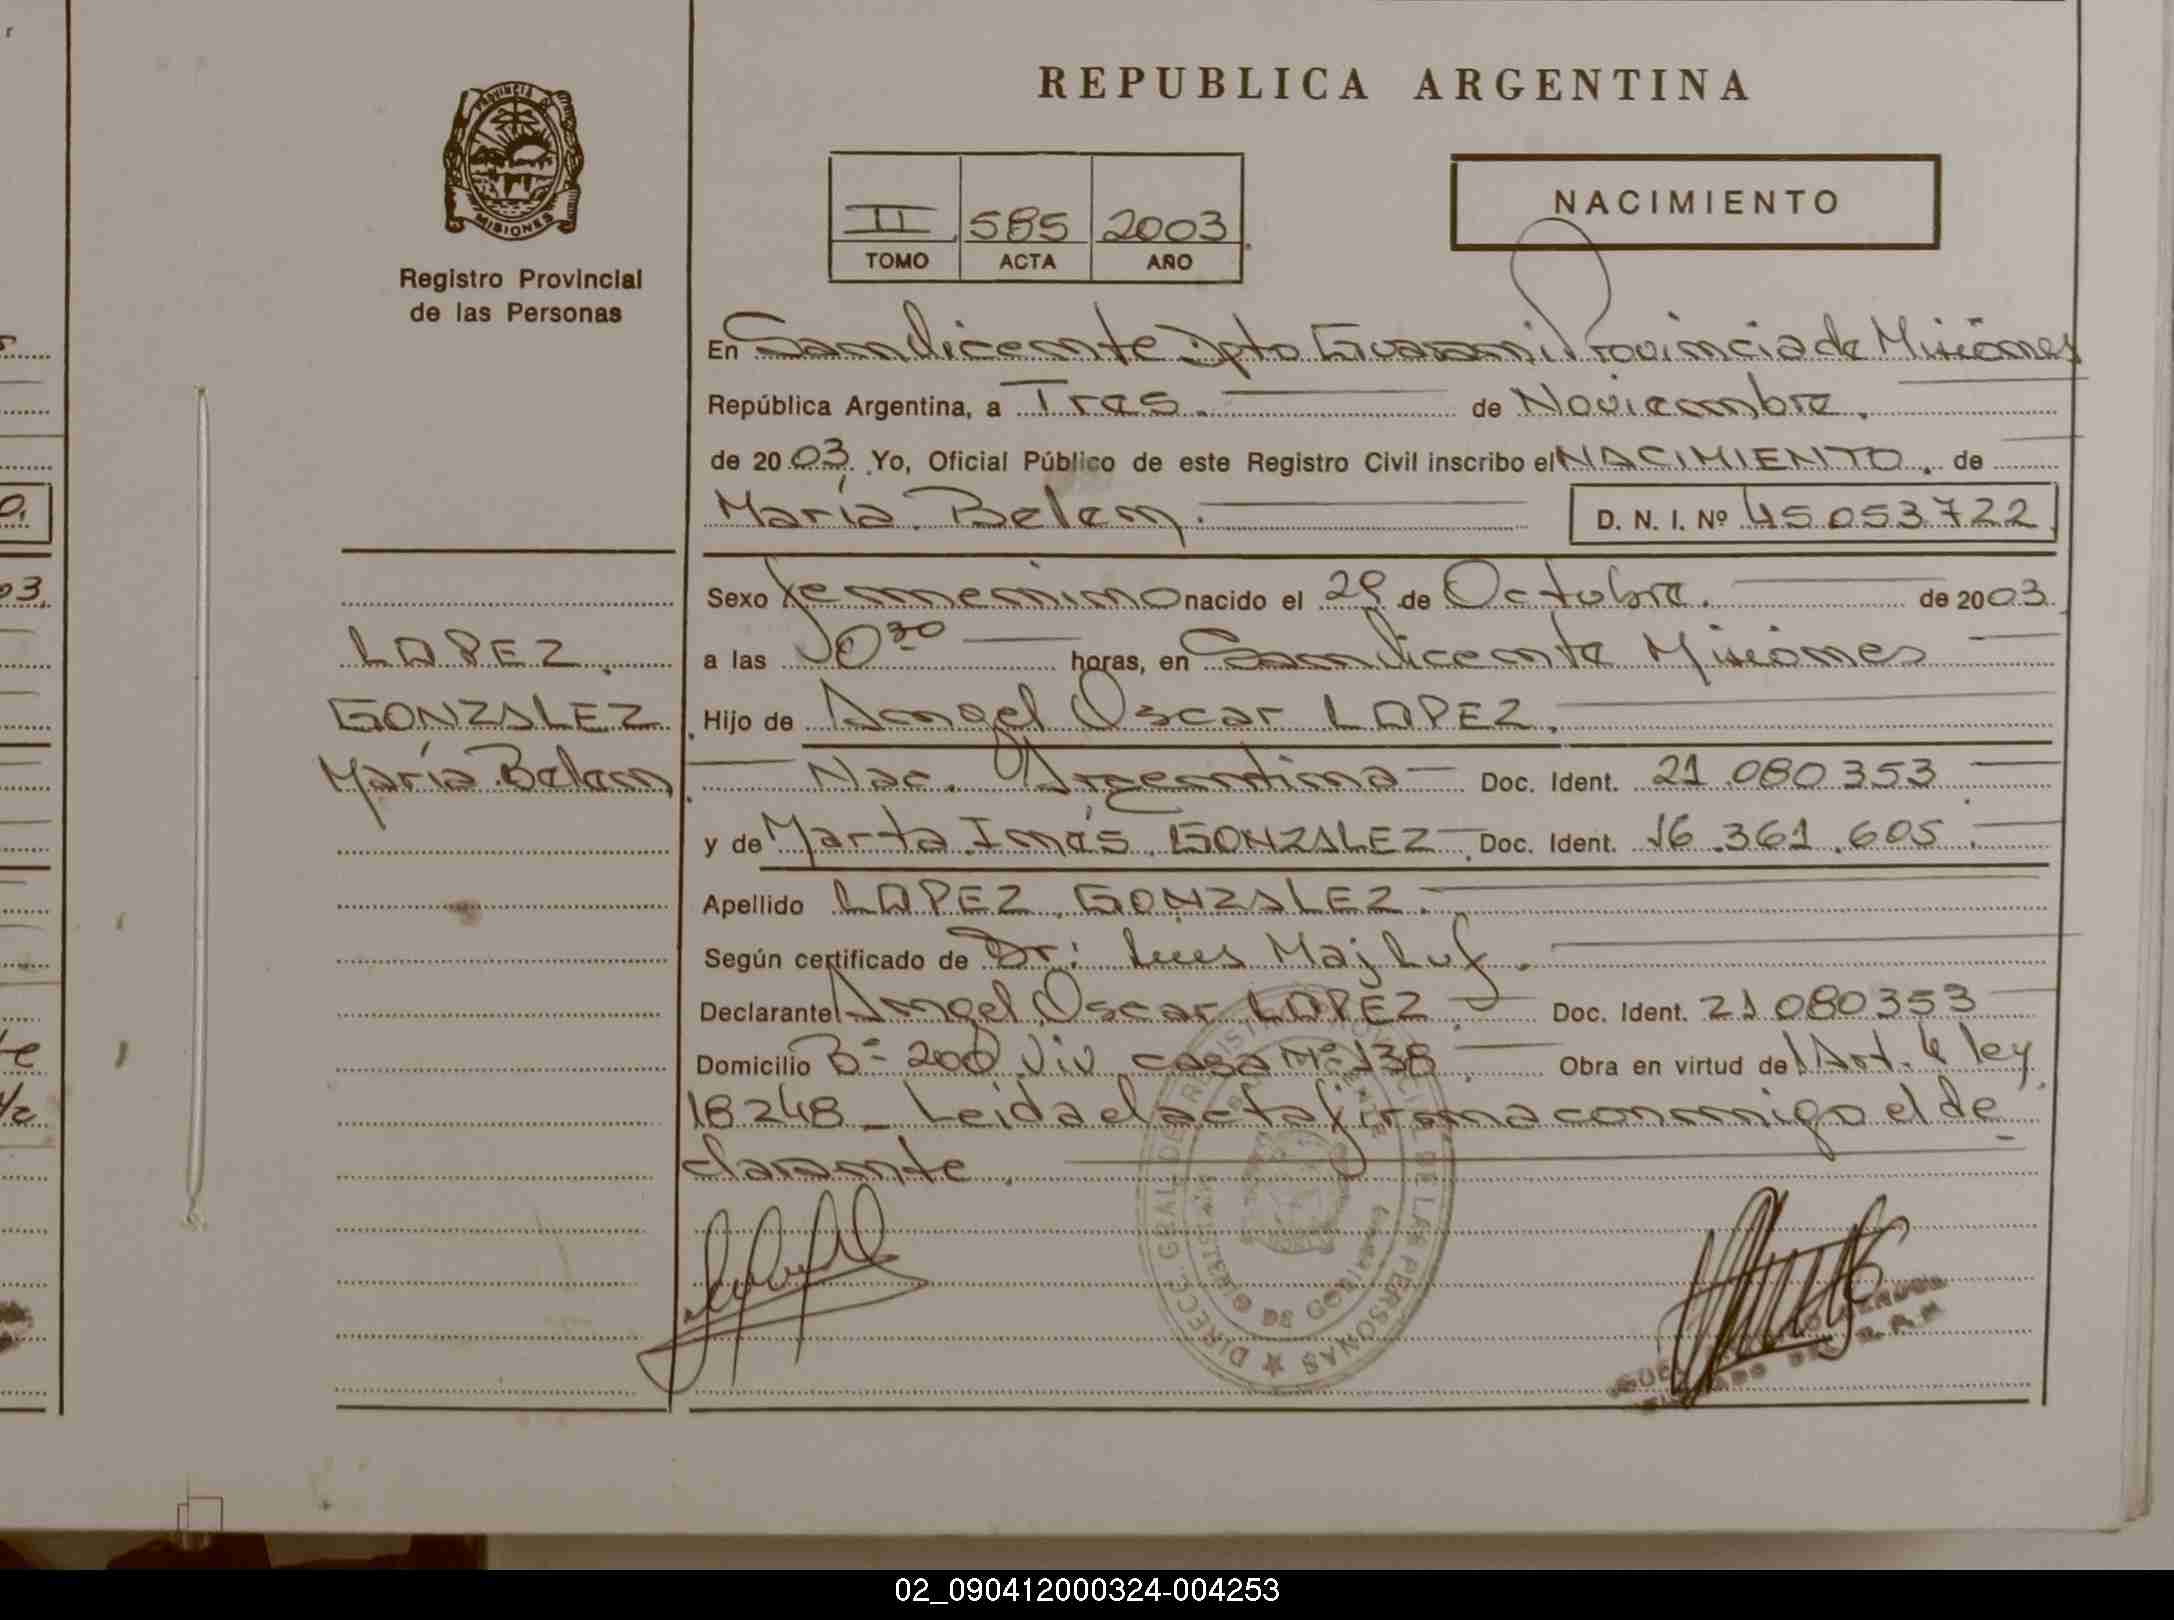 REPUBLICA ARGENTINA
PROVINCIA DE
MISIONES
Registro Provincial
de las Personas
II 585 2003
TOMO ACTA AÑO
NACIMIENTO
En San Vicente Dpto Guarani Provincia de Misiones
República Argentina, a Tres. de Noviembre.
de 2003. Yo, Oficial Público de este Registro Civil inscribo el NACIMIENTO. de
María Belen. D. N. I. Nº 45053722
Sexo femenino nacido el 29 de Octubre. de 2003.
a las 0 30 horas, en San Vicente Misiones
Hijo de Angel Oscar LOPEZ.
Nac. Argentina Doc. Ident. 21.080.353
y de Marta Inés GONZALEZ. Doc. Ident. 16.361.605.
Apellido LOPEZ GONZALEZ.
Según certificado de Dr: Luis Majluf.
Declarante Angel Oscar LOPEZ. Doc. Ident. 21080353
Domicilio Bº 200 Viv casa Nº 138. Obra en virtud del Art. 4 ley
18248_ Leida el acta firma conmigo el de
clarante.
LOPEZ.
GONZALEZ.
María Belen
DIRECC. GRAL. DE REGISTRO PROVINCIAL DE LAS PERSONAS
02_090412000324-004253